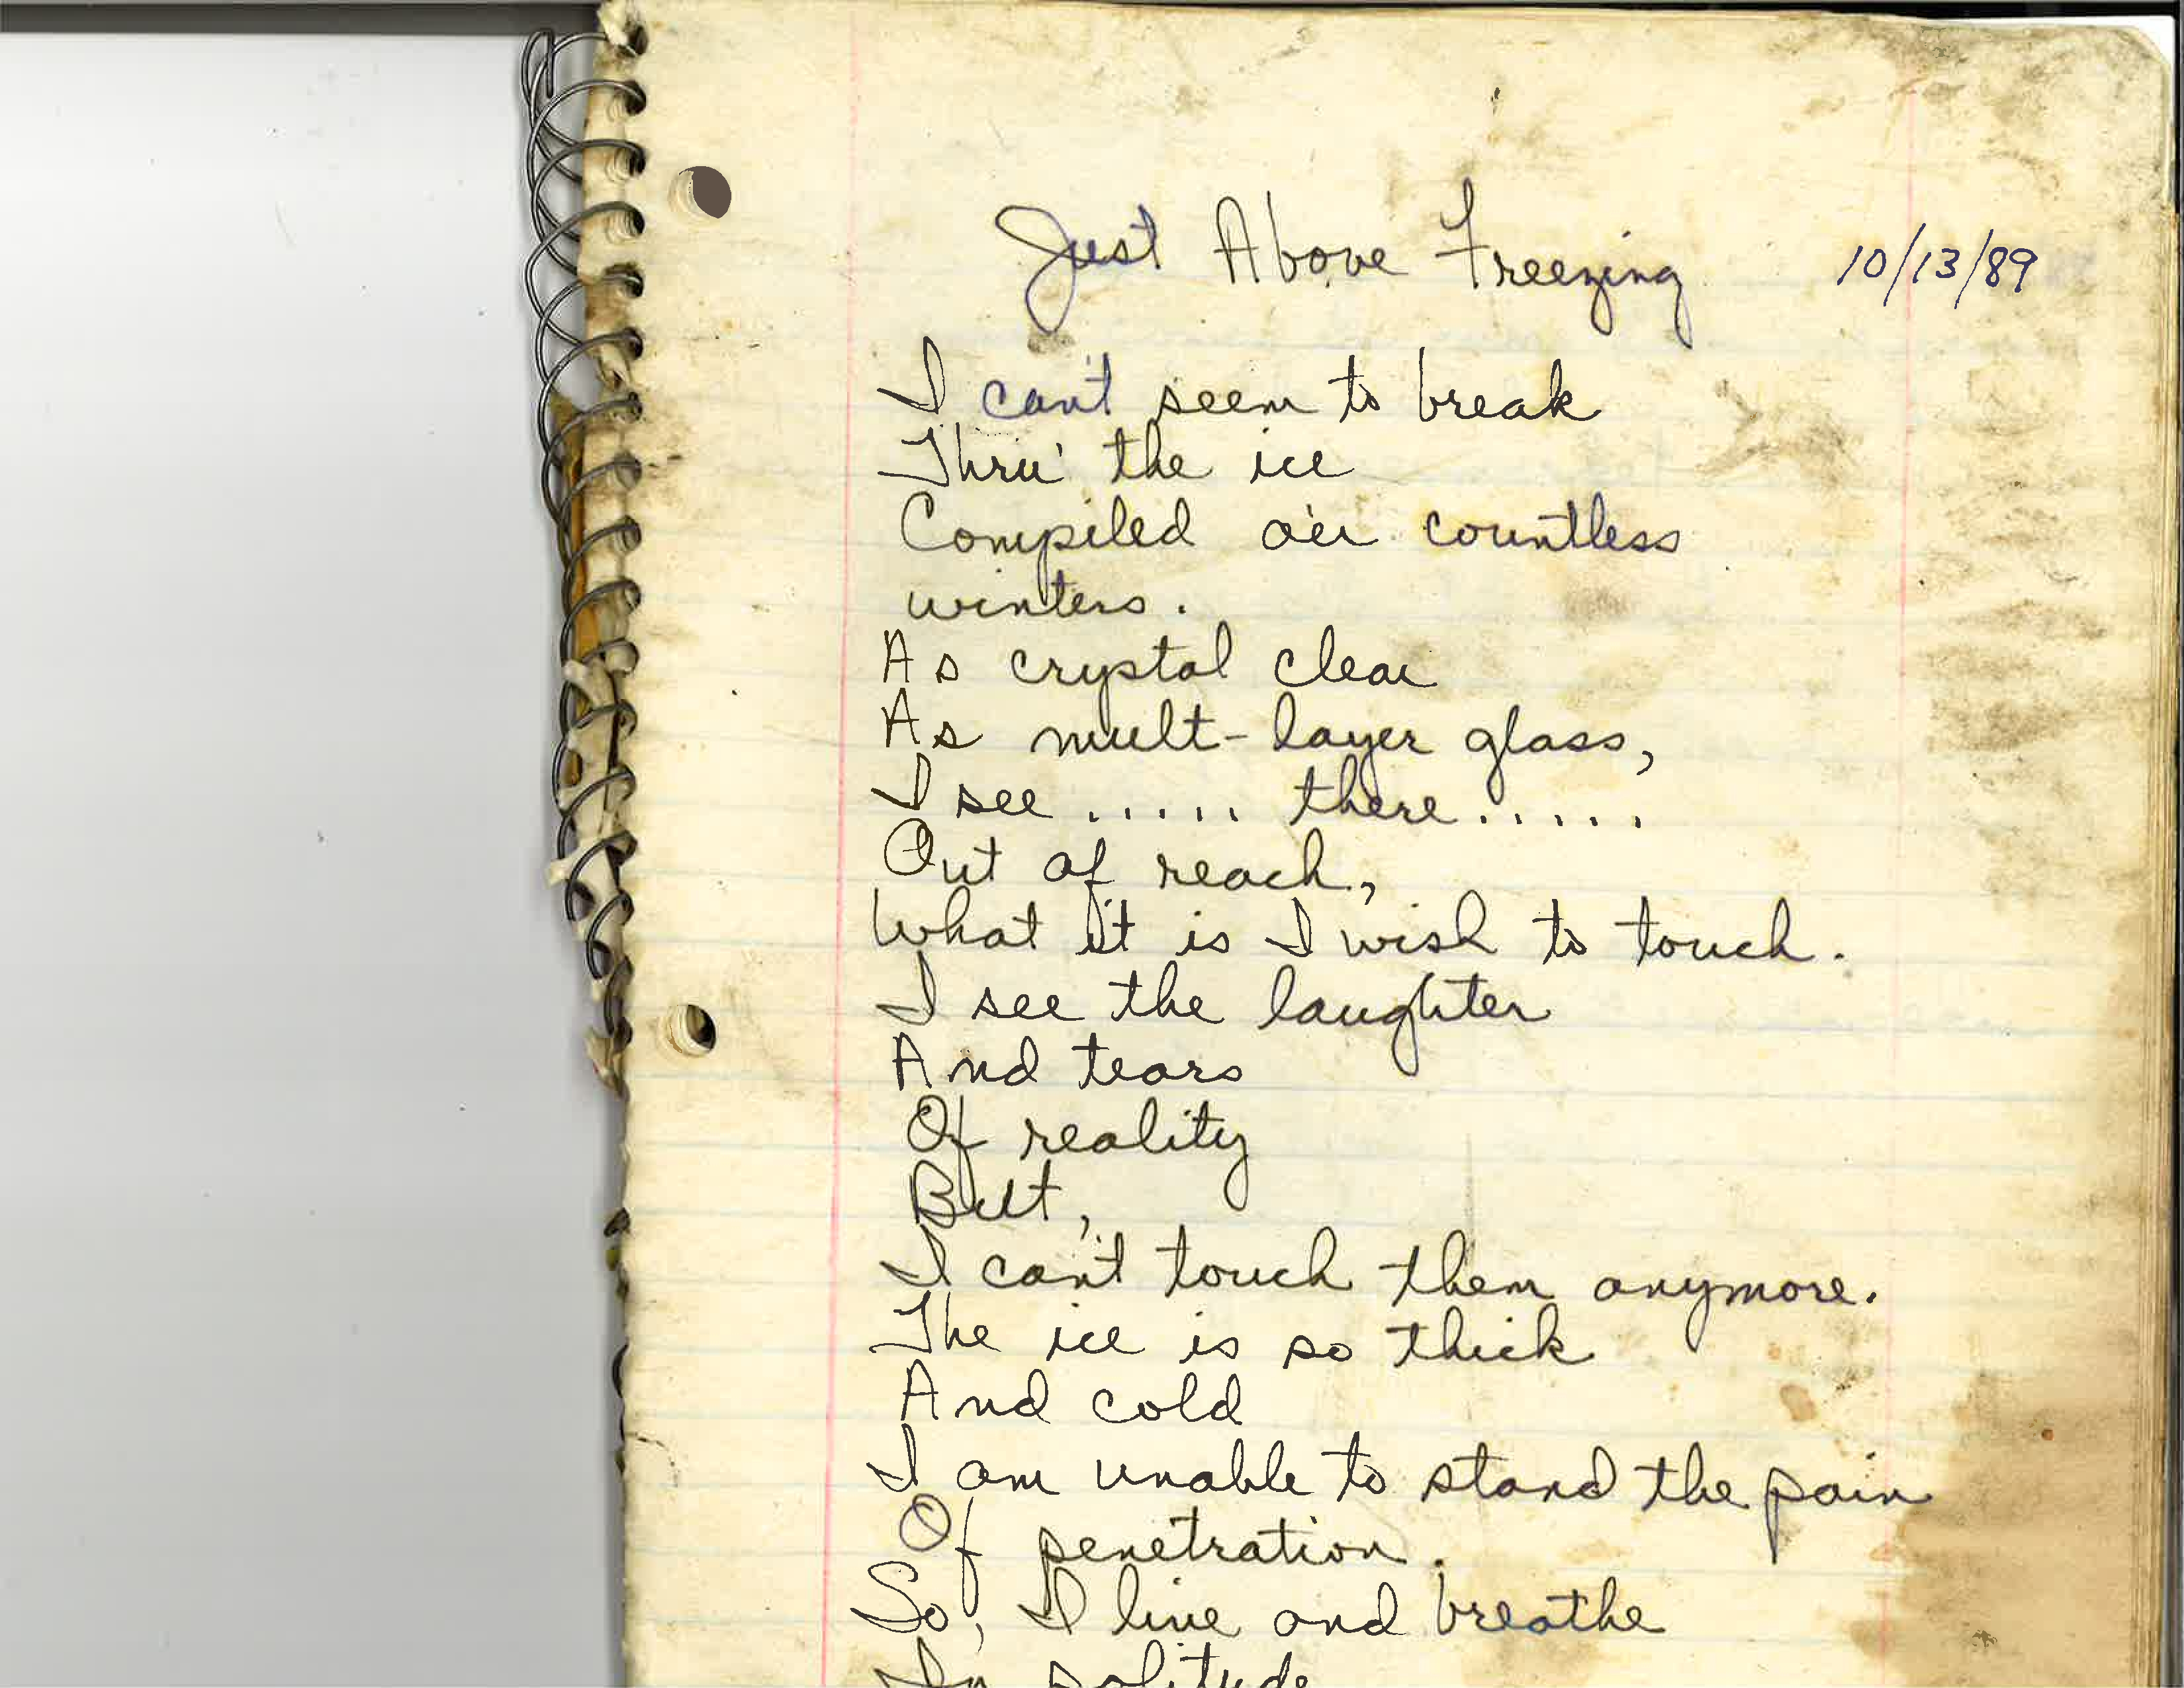 Just Above Freezing 10/13/89
I can't seem to break
Thru' the ice
Compiled o'er countless
winters.
As crystal clear
As mult-layer glass,
I see ..... there.....
Out of reach,
What it is I wish to touch.
I see the laughter
And tears
Of reality
But,
I can't touch them anymore.
The ice is so thick
And cold
I am unable to stand the pain
Of penetration.
So, I live and breathe
In solitude